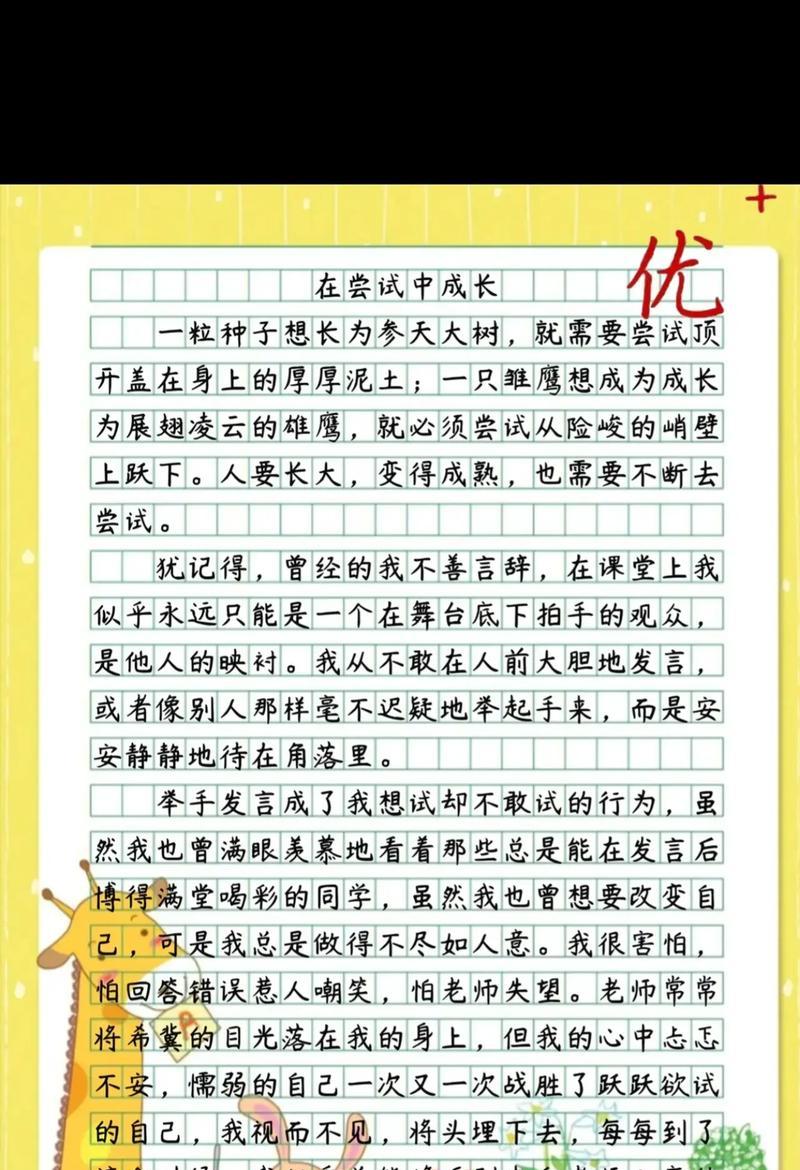 +
优
在尝试中成长
一粒种子想长为参天大树，就需要尝试顶
开盖在身上的厚厚泥土；一只雏鹰想成为成长
为展翅凌云的雄鹰，就必须尝试从险峻的峭壁
上跃下。人要长大，变得成熟，也需要不断去
尝试。
犹记得，曾经的我不善言辞，在课堂上我
似乎永远只能是一个在舞台底下拍手的观众，
是他人的映衬。我从不敢在人前大胆地发言，
或者像别人那样毫不迟疑地举起手来，而是安
安静静地待在角落里。
举手发言成了我想试却不敢试的行为，虽
然我也曾满眼羡慕地看着那些总是能在发言后
博得满堂喝彩的同学，虽然我也曾想要改变自
己，可是我总是做得不尽如人意。我很害怕，
怕回答错误惹人嘲笑，怕老师失望。老师常常
将希冀的目光落在我的身上，但我的心中忐忑
不安，懦弱的自己一次又一次战胜了跃跃欲试
的自己，我视而不见，将头埋下去，每每到了